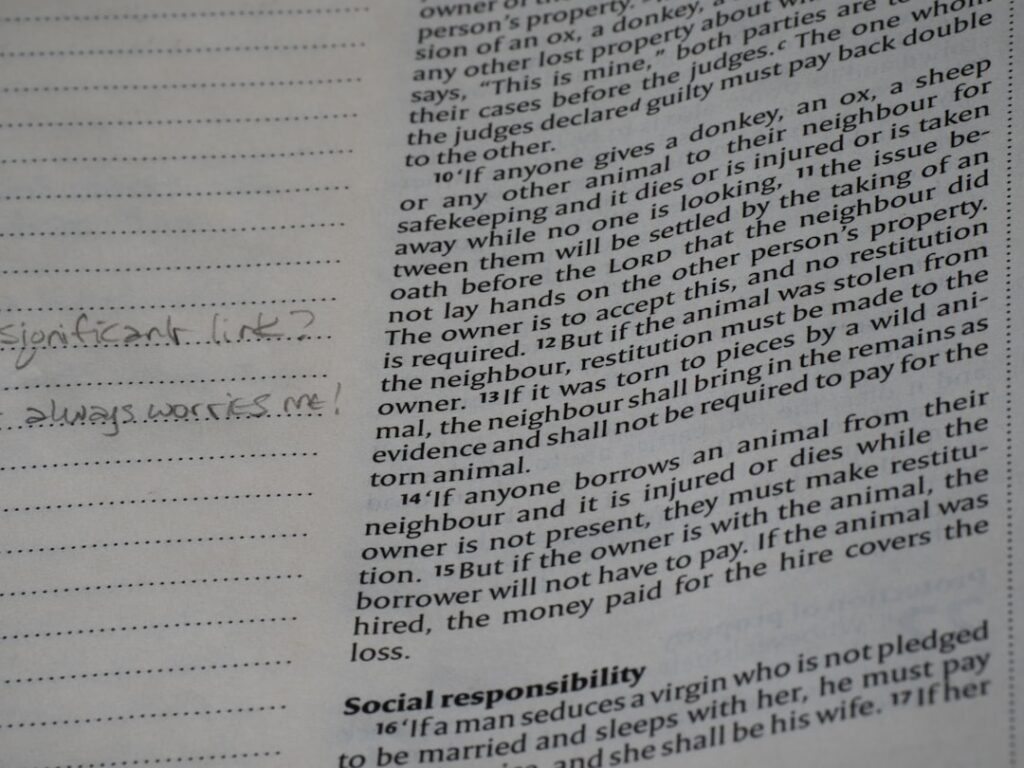 significant link?
always worries me!
owner of the
person's property.
sion of an ox, a donkey, a
any other lost property about
says, "This is mine," both parties are to
their cases before the judges.c The one whom
the judges declared guilty must pay back double
to the other.
10 'If anyone gives a donkey, an ox, a sheep
or any other animal to their neighbour for
safekeeping and it dies or is injured or is taken
away while no one is looking, 11 the issue be-
tween them will be settled by the taking of an
oath before the LORD that the neighbour did
not lay hands on the other person's property.
The owner is to accept this, and no restitution
is required. 12 But if the animal was stolen from
the neighbour, restitution must be made to the
owner. 13 If it was torn to pieces by a wild ani-
mal, the neighbour shall bring in the remains as
evidence and shall not be required to pay for the
torn animal.
14 'If anyone borrows an animal from their
neighbour and it is injured or dies while the
owner is not present, they must make restitu-
tion. 15 But if the owner is with the animal, the
borrower will not have to pay. If the animal was
hired, the money paid for the hire covers the
loss.
Social responsibility
16 'If a man seduces a virgin who is not pledged
to be married and sleeps with her, he must pay
and she shall be his wife. 17 If her